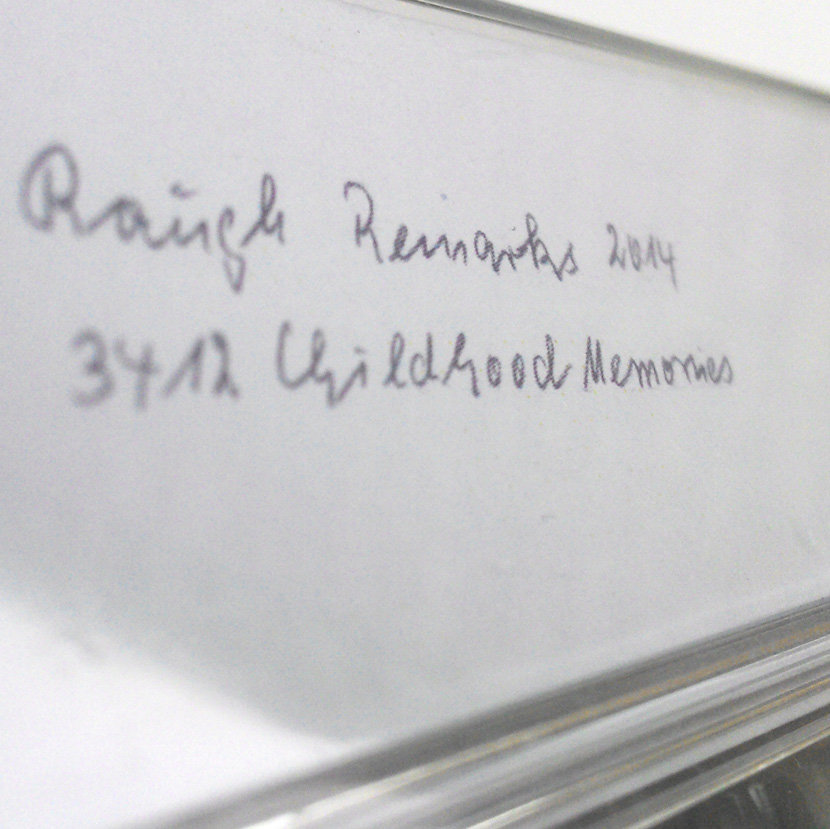 Raugh Remarks 2014
3412 Childhood Memories